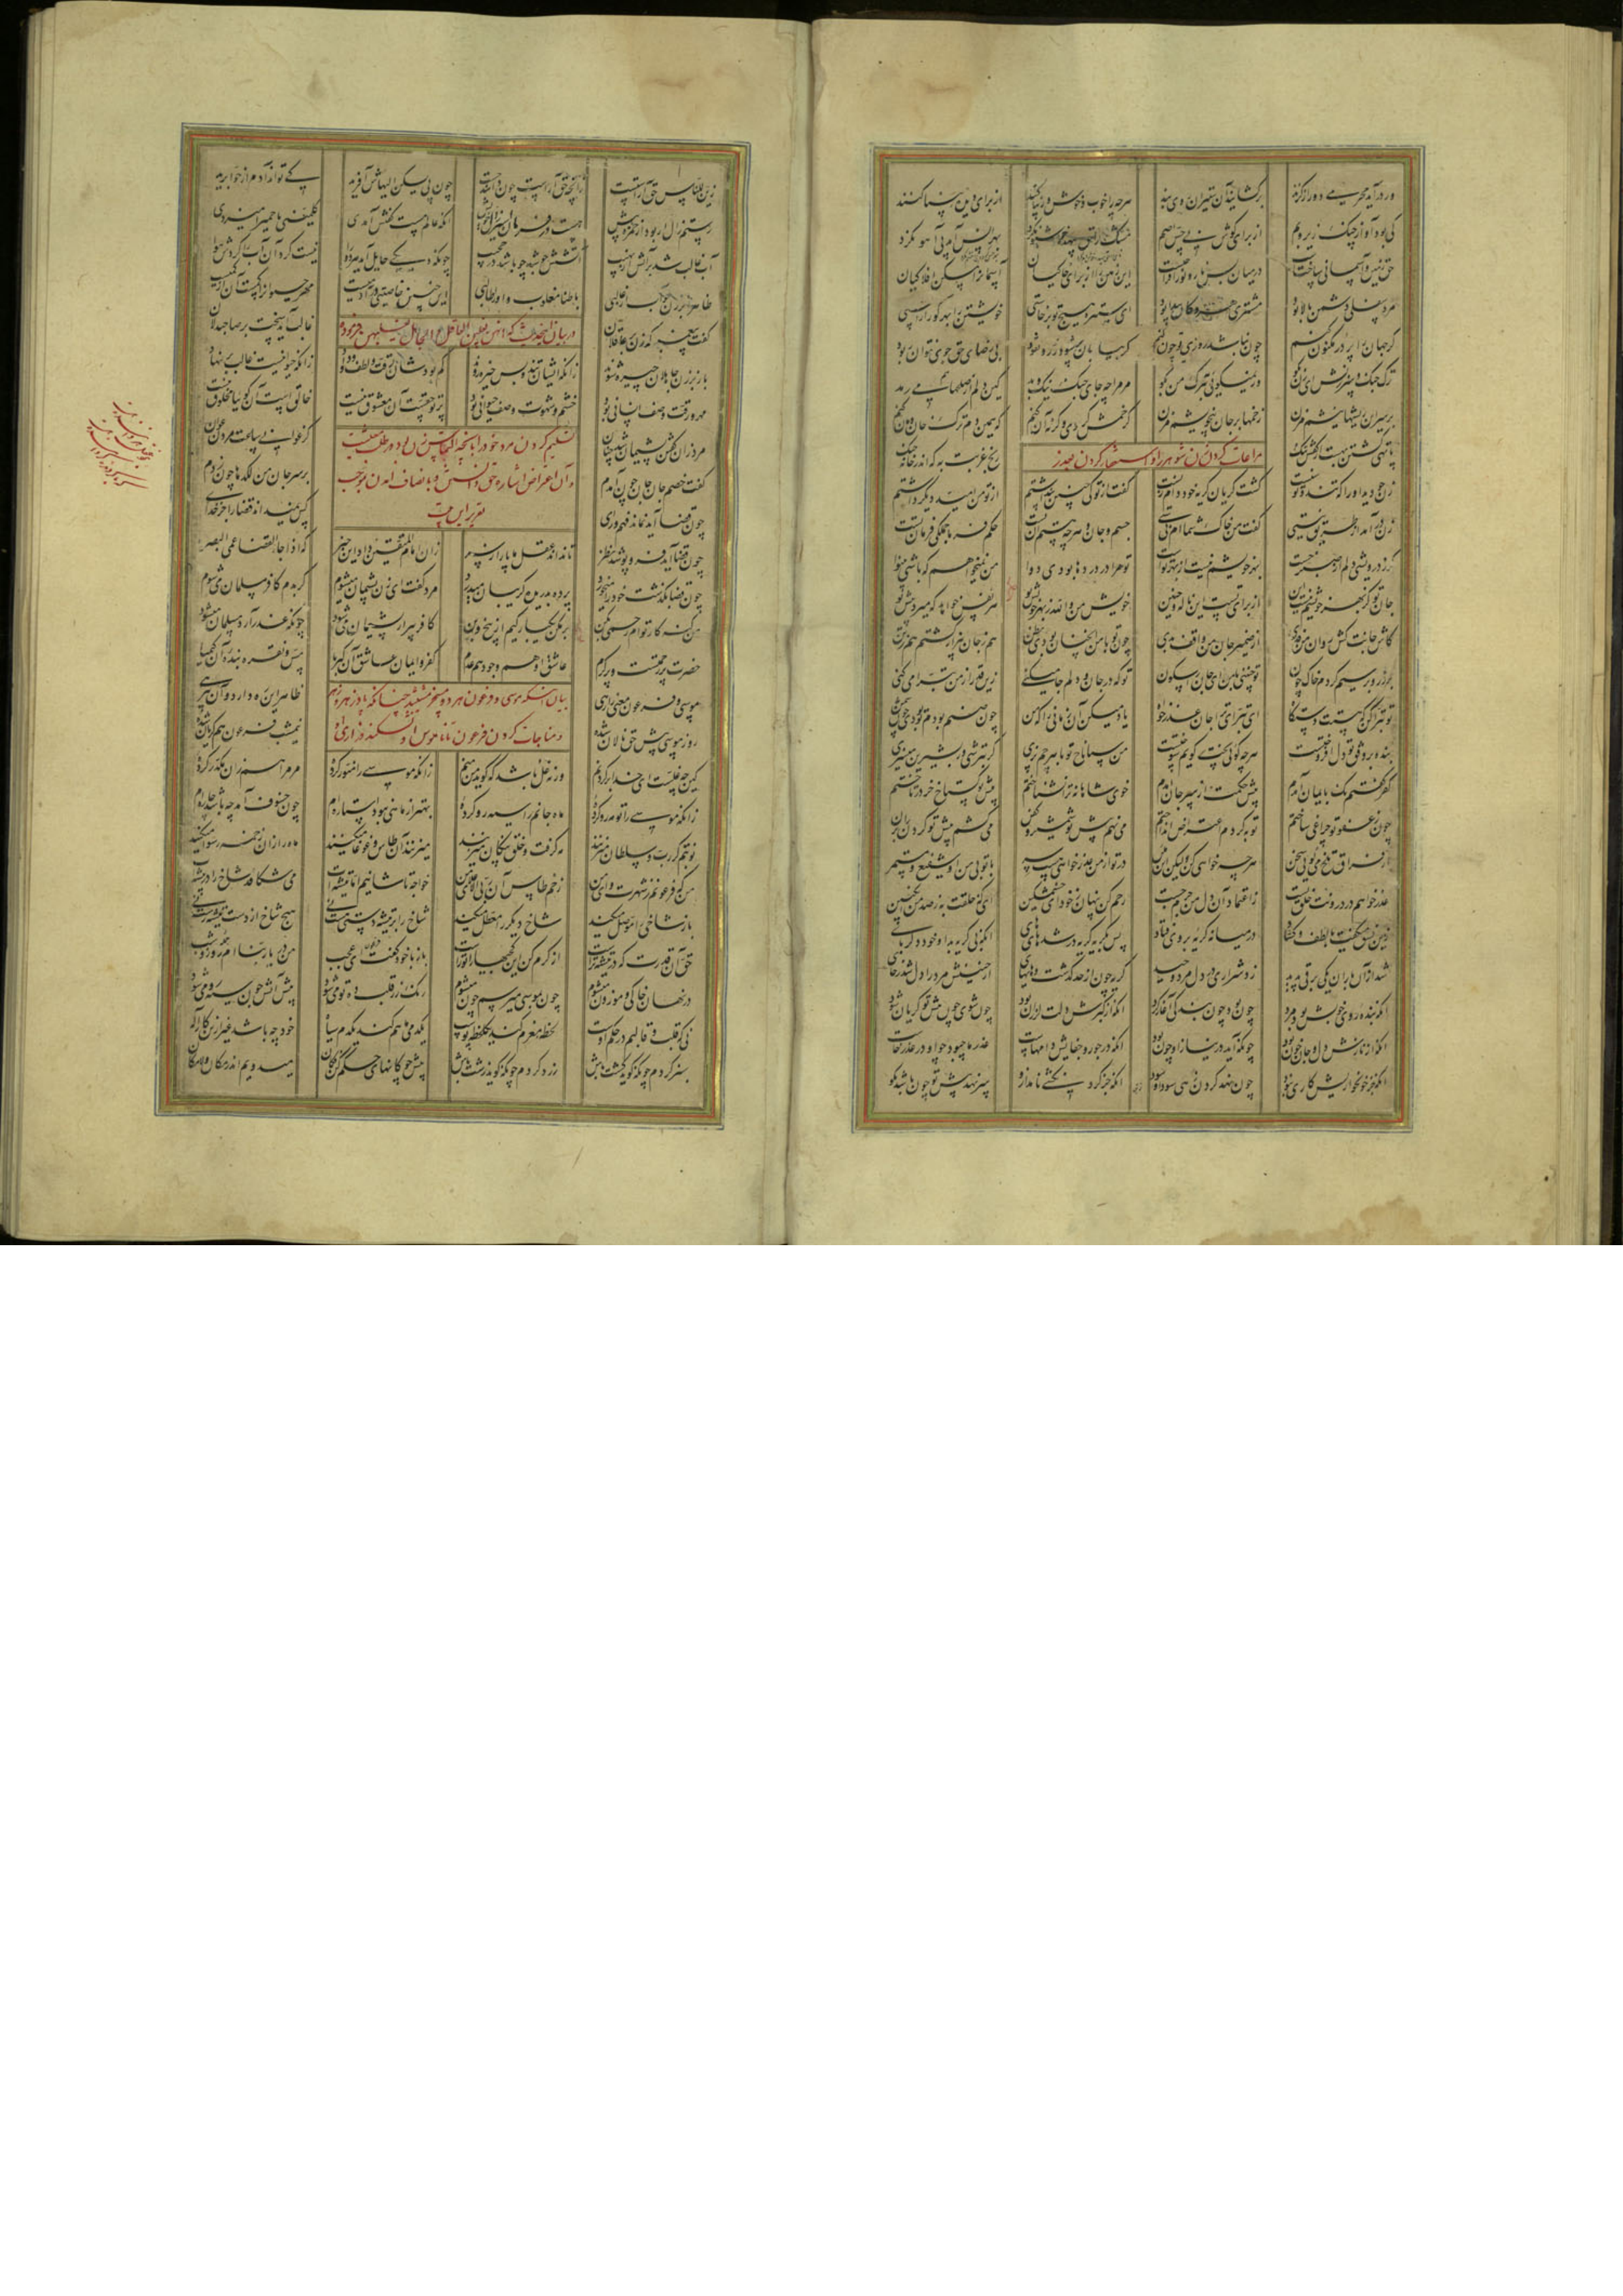 ور درآید محرمی دور از گزند برگشایند آن ستیران روی بند هرچه را خوب و خوش و زیبا کنند از برای دیده بینا کنند
کی بود آواز چنگ و زیر و بم از برای گوش بی حس اصم
حق زمین و آسمان بر ساخت است در میان بس نار و نور افراخت است این زمین را از برای خاکیان آسمان را مسکن افلاکیان
مرد سفلی دشمن بالا بود مشتری هر مکان پیدا بود ای ستیره هیچ تو برخاستی خویشتن را بهر کور آراستی
گر جهان را پر در مکنون کنم بی رضای حق جوی نتوان ربود
ترک جنگ و سرزنش ای زن بگو ور نمیگویی بترک من بگو مر مرا چه جای جنگ نیک و بد کین دلم از صلحها هم می رمد
بر سر این ریشها نیشم مزن زخمها بر جان بیخویشم مزن گر خمش گردی و گرنه آن کنم که همین دم ترک خان و مان کنم
پا تهی گشتن بهست از کفش تنگ رنج غربت به که اندر خانه جنگ
مراعات کردن زن شوهر را و استغفار کردن
زن چو دید او را که تند و توسنست گشت گریان گریه خود دام زنست گفت از تو کی چنین پنداشتم از تو من امید دیگر داشتم
زن درآمد از طریق نیستی گفت من خاک شماام نی ستی جسم و جان و هرچه هستم آن تست حکم و فرمان جملگی فرمان تست
گر ز درویشی دلم از صبر جست بهر خویشم نیست آن بهر تواست تو مرا در دردها بودی دوا من نمیخواهم که باشی بینوا
جان تو کز بهر خویشم نیست این از برای تست این ناله و حنین خویش من والله ز بهر خویش تو هر نفس خواهد که میرد پیش تو
کاش جانت کش روان من فدی از ضمیر جان من واقف بدی چون تو با من اینچنین بودی بظن هم ز جان بیزار گشتم هم ز تن
خاک را بر سیم و زر کردیم چون تو چنینی با من ای جان را سکون تو که در جان و دلم جا میکنی زین قدر از من تبرا میکنی
تو تبرا کن که هستت دستگاه ای تبرای ترا جان عذرخواه یاد میکن آن زمانی را که من چون صنم بودم تو بودی چون شمن
بنده بر وفق تو دل افروختست هرچه گویی پخت گوید سوختست من سپاناخ تو با هرچم پزی گر ترشی و یا شیرین میزی
کفر گفتم نک بایمان آمدم پیش حکمت از سر جان آمدم خوی شاهانه ترا نشناختم پیش تو گستاخ خر در تاختم
چون ز عفو تو چراغی ساختم توبه کردم اعتراض انداختم می نهم پیش تو شمشیر و کفن می کشم پیش تو گردن را بزن
از فراق تلخ میگویی سخن هرچه خواهی کن ولیکن این مکن در تو از من عذرخواهی هست سر با تو بی من او شفیعی مستمر
عذر خواهم در درونت خلق تست ز اعتماد آن دل من جرم جست رحم کن پنهان ز خود ای خشمگین ای که خلقت به ز صد من انگبین
زین نسق میگفت با لطف و گشاد در میانه گریه بر وی فتاد
شد از آن باران یکی برقی پدید زد شراری در دل مرد وحید گریه چون از حد گذشت و هایهای
آنکه بنده روی خوبش بود مرد چون بود چون بندگی آغاز کرد آنکه از کبرش دلت لرزان بود چون شوی چون پیش تو گریان شود
آنکه از نازش دل و جان خون بود چونکه آید در نیاز او چون بود آنکه در جور و جفایش دام ماست عذر ما چه بود چو او در عذر خاست
آنکه جز خونخواریش کاری نبود چون نهد گردن
زین للناس حق آراستست زانچه حق آراست چون دانند جست چون پی یسکن الیهاش آفرید کی تواند آدم از حوا برید
رستم زال ار بود از حمزه بیش هست در فرمان اسیر زال خویش آنکه عالم مست گفتش آمدی کلمینی یا حمیرا میزدی
آب غالب شد بر آتش از نهیب آتشش جوشد چو باشد در حجیب چونکه دیگی حایل آمد هر دو را نیست کرد آن آب را کردش هوا
ظاهرا بر زن چو آب ار غالبی باطنا مغلوب و زن را طالبی این چنین خاصیتی در آدمیست مهر حیوان را کمست آن از کمیست
در بیان این حدیث که انهن یغلبن العاقل و الجاهل یغلبهن
گفت پیغمبر که زن بر عاقلان غالب آید سخت بر صاحبدلان
باز بر زن جاهلان چیره شوند زانکه ایشان تند و بس خیره روند کم بودشان رقت و لطف و وداد زانکه حیوانیست غالب بر نهاد
مهر و رقت وصف انسانی بود خشم و شهوت وصف حیوانی بود پرتو حقست آن معشوق نیست خالقست آن گوییا مخلوق نیست
تسلیم کردن مرد خود را بآنچه التماس زن بود در طلب معیشت
و آن اعتراض اشاره حق دانستن
مرد زان گفتن پشیمان شد چنان کز عوانی ساعت مردن عوان
گفت خصم جان جان چون آمدم بر سر جان من لگدها چون زدم
چون قضا آید نماند فهم و رای کس نمیداند قضا را جز خدای
چون قضا آید فرو پوشد نظر تا نداند عقل ما پا را ز سر زان امام المتقین داد این خبر که اذا جاء القضا عمی البصر
چون قضا بگذشت خود را میخورد پرده بدریده گریبان میدرد مرد گفت ای زن پشیمان میشوم گر بدم کافر مسلمان میشوم
من گنه کار توام رحمی بکن بر مکن یکبارگیم از بیخ و بن کافر پیر ار پشیمان میشود چونکه عذر آرد مسلمان میشود
حضرت پر رحمتست و پر کرم عاشق او هم وجود و هم عدم کفر و ایمان عاشق آن کبریا مس و نقره بنده آن کیمیا
بیان آنکه موسی و فرعون هر دو مسخر مشیتند چنانکه پادزهر و زهر
و مناجات کردن فرعون تا ناموس او نشکند
موسی و فرعون معنی را رهی ظاهر این ره دارد و آن بیرهی
روز موسی پیش حق نالان شده نیمشب فرعون هم گریان شده
کین چه غلست ای خدا بر گردنم ور نه غل باشد که گوید من منم زانکه موسی را منور کرده مر مرا هم زان مکدر کرده
زانکه موسی را تو مه رو کرده ماه جانم را سیه رو کرده بهتر از ماهی نبود استاره ام چون خسوف آمد چه باشد چاره ام
نوبتم گر رب و سلطان میزنند مه گرفت و خلق پنگان میزنند میزنند آن طاس و غوغا میکنند ماه را زان زخمه رسوا میکنند
من که فرعونم ز شهرت وای من زخم طاس آن ربی الاعلای من خواجه تاشانیم اما تیشه ات می شکافد شاخ را در بیشه ات
باز شاخی را موصل میکند شاخ دیگر را معطل میکند شاخ را بر تیشه دستی هست نی هیچ شاخ از دست تیشه رست نی
حق آن قدرت که در تیشه تراست از کرم کن این کجیها را تو راست باز با خود گفت فرعون ای عجب من نه دایم در ربنا ام روز و شب
در نهان خاکی و موزون میشوم چون بموسی میرسم چون میشوم رنگ زر قلب ده تو میشود پیش آتش چون سیه رو میشود
نی که قلب و قالبم در حکم اوست لحظه مغزم کند یکلحظه پوست یکدمی ماهم کند یکدم سیاه خود چه باشد غیر ازین کار اله
سبز گردم چونکه گوید کشت باش زرد گردم چونکه گوید زشت باش پیش چوگانهای حکم کن فکان میدویم اندر مکان و لامکان